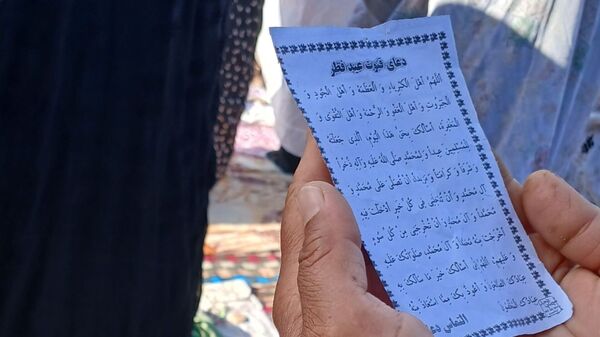 دعای قنوت عید فطر
اللهُمَّ اَهْلَ الْكِبْرِياءِ وَ الْعَظَمَةِ وَ اَهْلَ الْجُودِ وَ
الْجَبَرُوتِ وَ اَهْلَ الْعَفْوِ وَ الرَّحْمَةِ وَ اَهْلَ التَّقْوى وَ
الْمَغْفِرَةِ، اَسْاَلُكَ بِحَقِّ هَذَا الْيَوْمِ، الَّذى جَعَلْتَهُ
لِلْمُسْلِمِينَ عِيداً وَ لِمُحَمَّدٍ صَلَّى اللهُ عَلَيْهِ وَ آلِهِ ذُخْراً
وَ شَرَفاً وَ كَرامَتاً وَ مَزِيداً اَنْ تُصَلِّىَ عَلى مُحَمَّدٍ وَ
آلِ مُحَمَّدٍ وَ اَنْ تُدْخِلَنِى فِى كُلِّ خَيْرٍ اَدْخَلْتَ فِيهِ
مُحَمَّداً وَ آلَ مُحَمَّدٍ وَ اَنْ تُخْرِجَنِى مِنْ كُلِّ سُوءٍ
اَخْرَجْتَ مِنْهُ مُحَمَّداً وَ آلَ مُحَمَّدٍ، صَلَواتُكَ عَلَيْهِ
وَ عَلَيْهِمْ، اَللهُمَّ اِنِّى اَسْاَلُكَ خَيْرَ ما سَاَلَكَ بِهِ
عِبادُكَ الصَّالِحُونَ، وَ اَعُوذُ بِكَ مِمَّا اسْتَعاذَ مِنْهُ
عِبادُكَ
التماس دعا